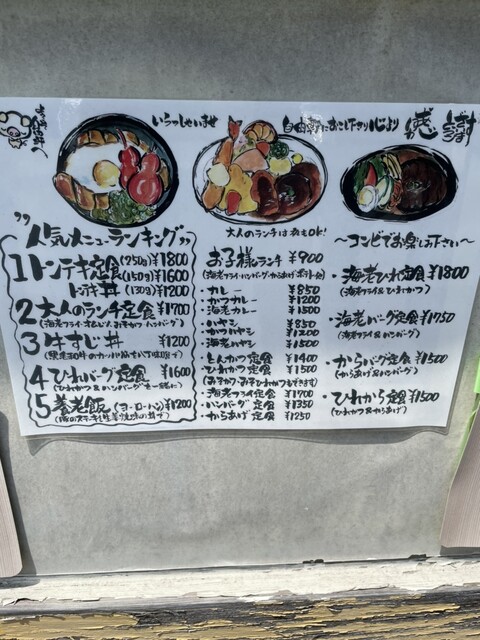 いらっしゃいませ
自由軒におこし下さり心より
感謝
大人のランチは夜もOK!
"人気メニューランキング"
1 トンテキ定食(250g)¥1800
(150g)¥1600
トンテキ丼(130g)¥1200
2 大人のランチ定食 ¥1700
(海老フライ
ハンバーグ)
3 牛すじ丼 ¥1200
4 ひれバーグ定食 ¥1600
(ひれかつ&ハンバーグを一緒に)
5 養老飯(ヨーローハン)¥1200
お子様ランチ ¥900
(海老フライ・ハンバーグ・からあげ
・カレー ¥850
・かつカレー ¥1200
・海老カレー ¥1500
・ハヤシ ¥850
・かつハヤシ ¥1200
・海老ハヤシ ¥1500
・とんかつ定食 ¥1400
・ひれかつ定食 ¥1500
(みそかつ・みそひれかつもできます)
・海老フライ定食 ¥1700
・ハンバーグ定食 ¥1350
・からあげ定食 ¥1250
〜コンビでお楽しみ下さい〜
・海老ひれ定食 ¥1800
(海老フライ&ひれかつ)
・海老バーグ定食 ¥1750
(海老フライ&ハンバーグ)
・からバーグ定食 ¥1500
(からあげ&ハンバーグ)
・ひれから定食 ¥1500
(ひれかつ&からあげ)